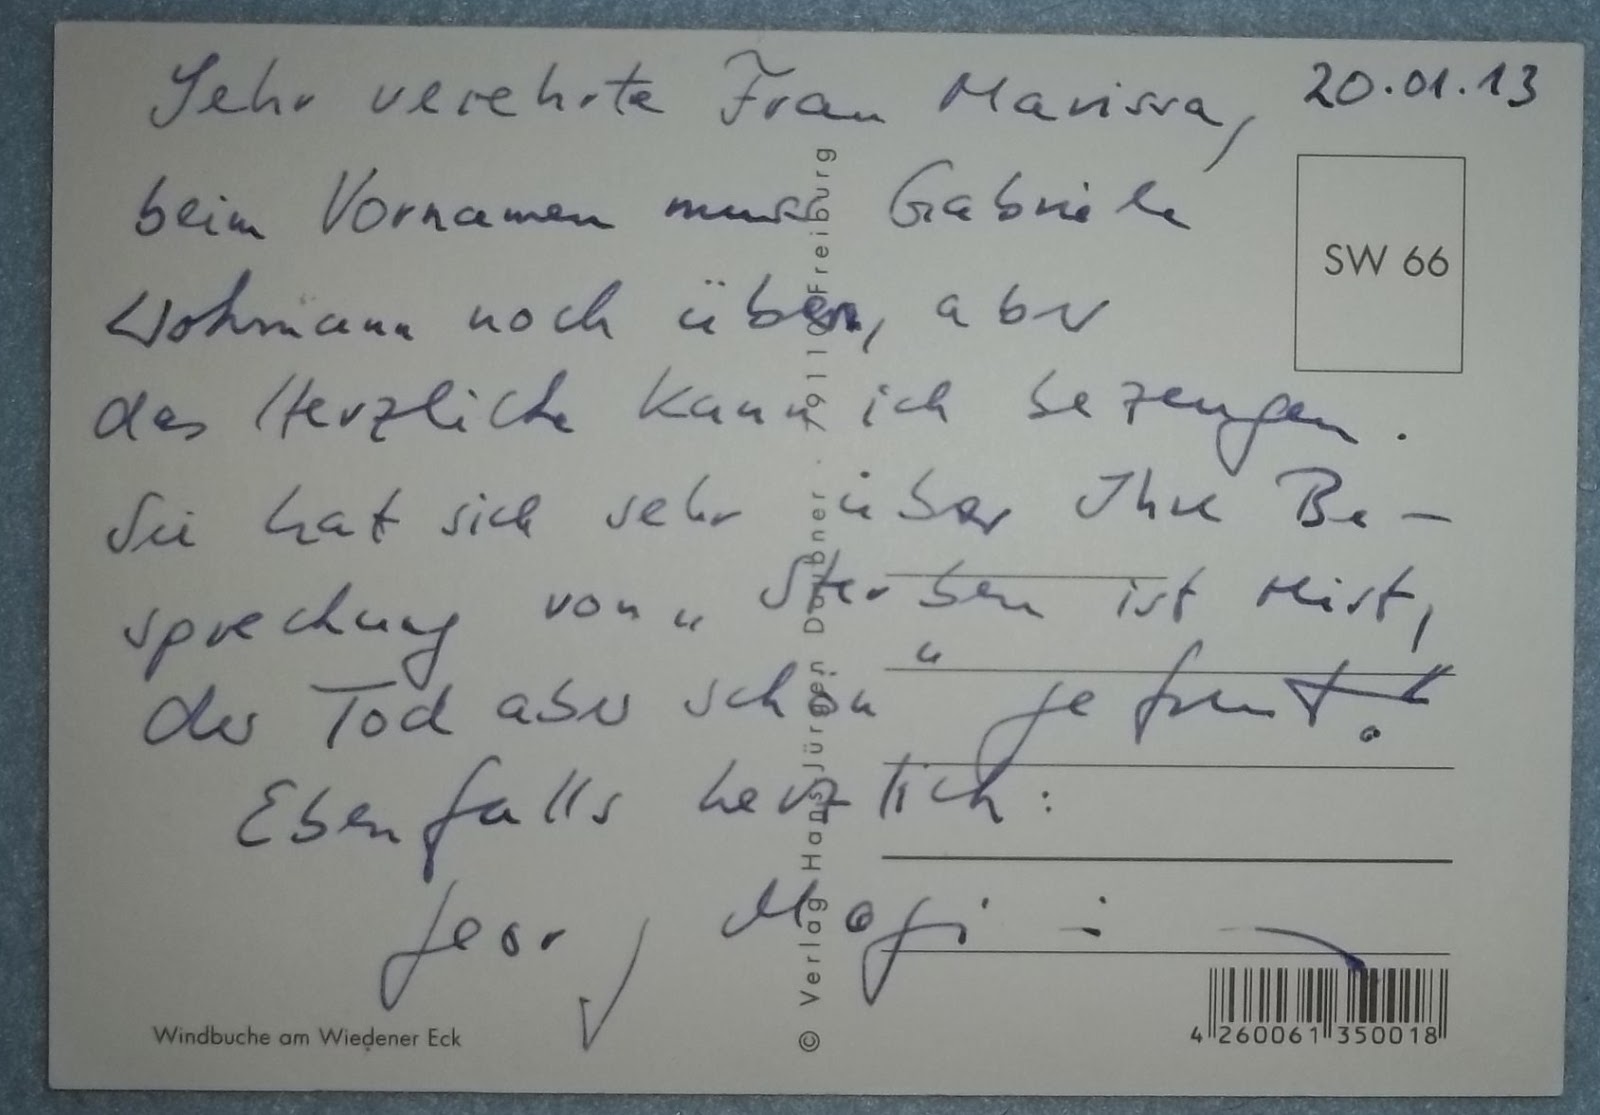 20.01.13
Sehr verehrte Frau Marissa,
beim Vornamen muss Gabriele
Wohmann noch üben, aber
das Herzliche kann ich bezeugen.
Sie hat sich sehr über Ihre Be-
sprechung von „Sterben ist Mist,
der Tod aber schön" gefreut.
Ebenfalls herzlich:
Georg
SW 66
© Verlag Hans-Jürgen Daubner · 79110 Freiburg
Windbuche am Wiedener Eck
4 260061 350018